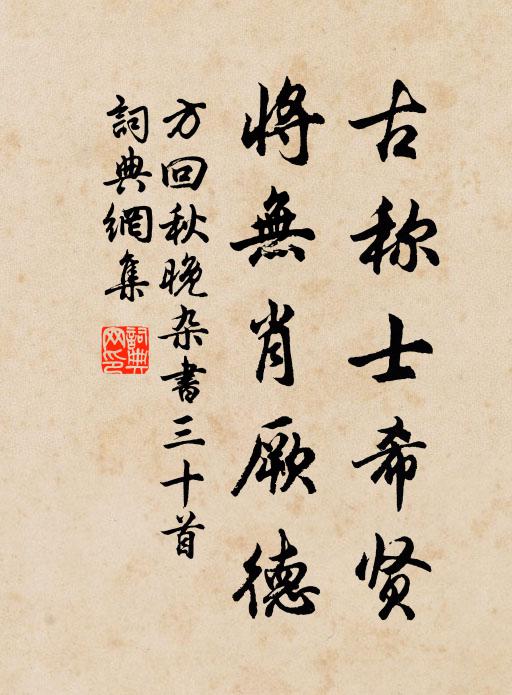 古称士希贤
将無肖厥德
方回秋晚杂書三十首
詞典網集
詞典網印